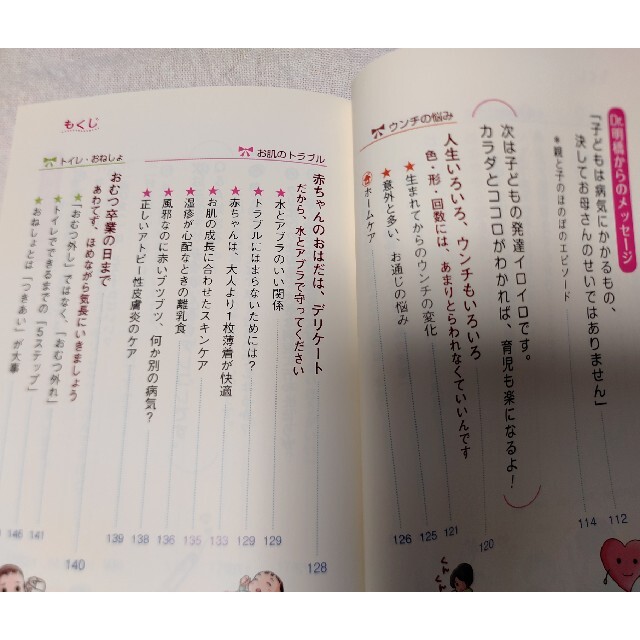 Dr.明橋からのメッセージ
「子どもは病気にかかるもの、
決してお母さんのせいではありません」
112
＊親と子のほのぼのエピソード
114
次は子どもの発達イロイロです。
カラダとココロがわかれば、育児も楽になるよ！
ウンチの悩み
人生いろいろ、ウンチもいろいろ
色・形・回数には、あまりとらわれなくていいんです
120
★生まれてからのウンチの変化
121
★意外と多い、お通じの悩み
125
ホームケア
126
くんくん
もくじ
お肌のトラブル
赤ちゃんのおはだは、デリケート
だから、水とアブラで守ってください
128
★水とアブラのいい関係
129
★トラブルにはまらないためには？
129
★赤ちゃんは、大人より1枚薄着が快適
133
★お肌の成長に合わせたスキンケア
135
★湿疹が心配なときの離乳食
136
★風邪なのに赤いブツブツ、何か別の病気？
138
★正しいアトピー性皮膚炎のケア
139
トイレ・おねしょ
おむつ卒業の日まで
あわてず、ほめながら気長にいきましょう
140
★「おむつ外し」ではなく、「おむつ外れ」
141
★トイレでできるまでの「5ステップ」
146
★おねしょとは「つきあい」が大事